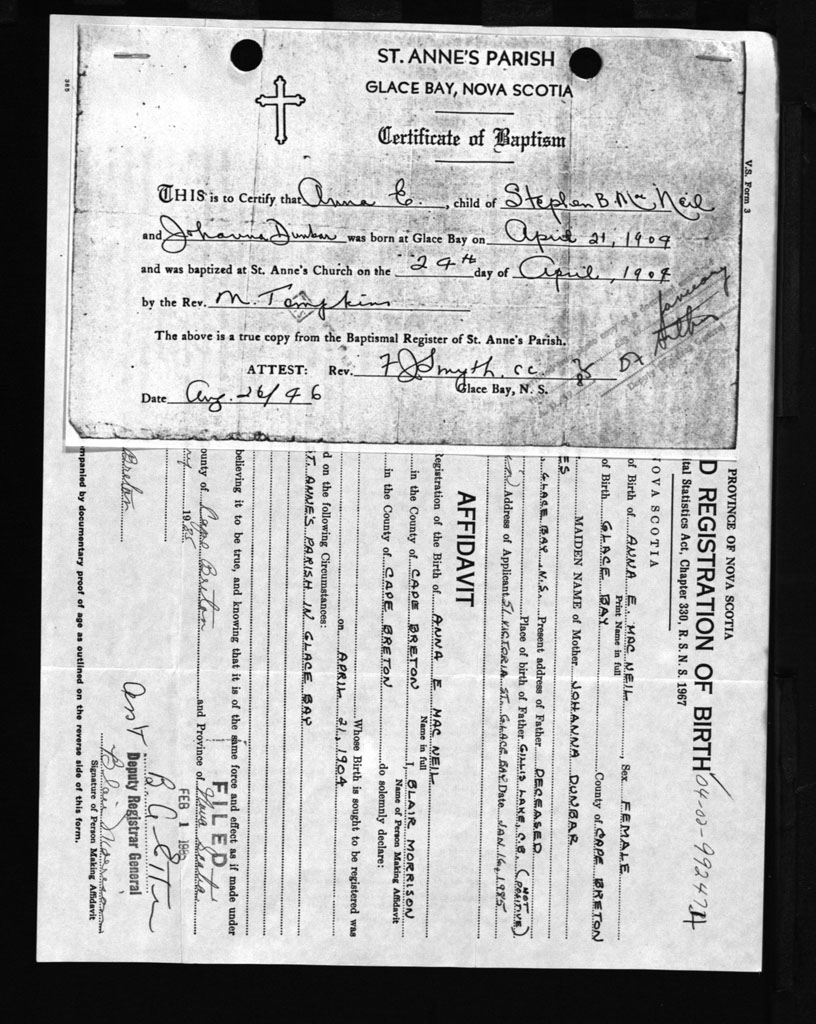 ST. ANNE'S PARISH
GLACE BAY, NOVA SCOTIA
Certificate of Baptism
THIS is to Certify that Anna E. , child of Stephen B MacNeil
and Johanna Dunbar was born at Glace Bay on April 21, 1904
and was baptized at St. Anne's Church on the 24th day of April, 1904
by the Rev. M. Tompkins
The above is a true copy from the Baptismal Register of St. Anne's Parish.
ATTEST: Rev. F J Smyth. cc.
Glace Bay, N. S.
Date Aug. 26/46
V.S. Form 3
PROVINCE OF NOVA SCOTIA
D REGISTRATION OF BIRTH 04-03-99247
tal Statistics Act, Chapter 330, R. S. N. S. 1967
OVA SCOTIA
of Birth of ANNA E. MAC NEIL, Sex FEMALE
Print Name in full
of Birth GLACE BAY County of CAPE BRETON
MAIDEN NAME of Mother JOHANNA DUNBAR
ES
GLACE BAY, N.S. Present address of Father DECEASED
Place of birth of Father GILLIS LAKE, C.B. (NOT POSITIVE)
Address of Applicant 51 VICTORIA ST. GLACE BAY Date JAN. 16, 1985
AFFIDAVIT
Registration of the Birth of ANNA E MAC NEIL
Name in full
in the County of CAPE BRETON I, BLAIR MORRISON
Name of Person Making Affidavit
in the County of CAPE BRETON do solemnly declare:
Whose Birth is sought to be registered was
on APRIL 21, 1904
d on the following Circumstances:
ST. ANNE'S PARISH IN GLACE BAY
believing it to be true, and knowing that it is of the same force and effect as if made under
ounty of Cape Breton and Province of Nova Scotia
19
Breton
FILED
FEB 1
Deputy Registrar General
Blair Morrison
Signature of Person Making Affidavit
mpanied by documentary proof of age as outlined on the reverse side of this form.